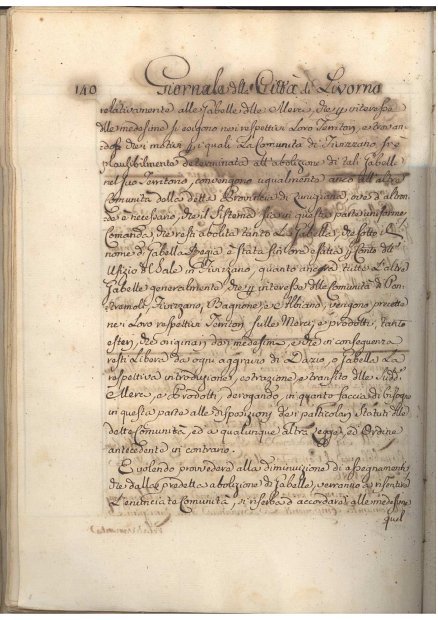 140 Giornale della Città di Livorno
relativamente alle Gabelle delle Merci, che p. interesse
delle medesime si esigono nei respettivi Loro Territori, e trovan
dosi che i motivi p. i quali La Comunità di Fivizzano si è
plausibilmente determinata all'abolizione di tali Gabelle
nel suo Territorio, convengono ugualmente anco all'altre
Comunità della detta Provincia di Lunigiana, ove d'altron
de è necessario, che il Sistema sia in questa parte uniforme
Comanda, che resti abolita tanto La Gabella, che sotto
nome di Gabella Regia è stata fin'ora esatta p. Conto dell'
Ufizio del Sale in Fivizzano, quanto ancora tutte L'altre
Gabelle generalmente, che p. interesse delle Comunità di Pon
tremoli, Fivizzano, Bagnone, e Albiano, vengono percette
nei Loro respettivi Territori sulle Merci, e prodotti, tanto
esteri, che originari dei medesimi, e che in conseguenza
resti Libera da ogni aggravio di Dazio, o Gabella La
respettiva introduzione, estrazione, e transito delle Sudd.e
Merci, e Prodotti, derogando in quanto faccia di bisogno
in questa parte alle disposizioni dei particolari Statuti delle
dette Comunità, ed a qualunque altra Legge, ed Ordine
antecedente in contrario.
E volendo provvedere alla diminuzione di assegnamenti
che dalla predetta abolizione di Gabelle, verranno a risentire
L'enunciate Comunità, si riserba d'accordare alle medesime
quel